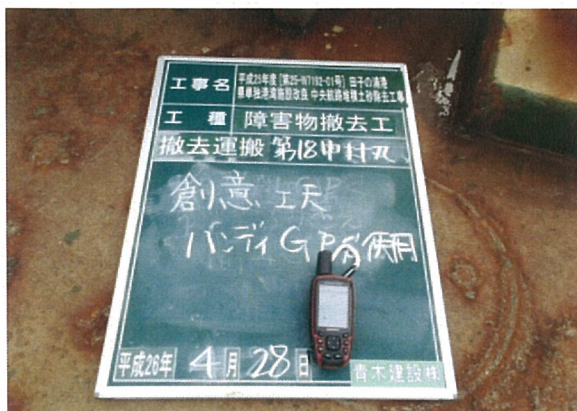 工事名
平成25年度[第25-W7192-01号]田子の浦港
県単独港湾施設改良 中央航路堆積土砂除去工事
工種 障害物撤去工
撤去運搬 第18中村丸
創意工夫
ハンディGPS使用
平成26年 4月28日
青木建設㈱